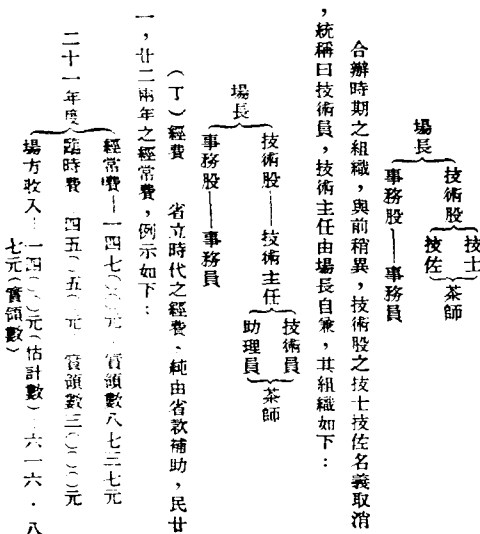 場長
技術股
技士
技佐
茶師
事務股——事務員
合辦時期之組織，與前稍異，技術股之技士技佐名義取消
，統稱曰技術員，技術主任由場長自兼，其組織如下：
場長
技術股——技術主任
技術員
助理員
茶師
事務股——事務員
（丁）經費　省立時代之經費，純由省款補助，民廿
一，廿二兩年之經常費，例示如下：
二十一年度
經常費—一四七〇〇元　實領數八七三七元
臨時費　四五〇五〇元　實領數三〇〇〇元
場方收入：一四〇〇元（估計數）：六一六．八
七元（實領數）